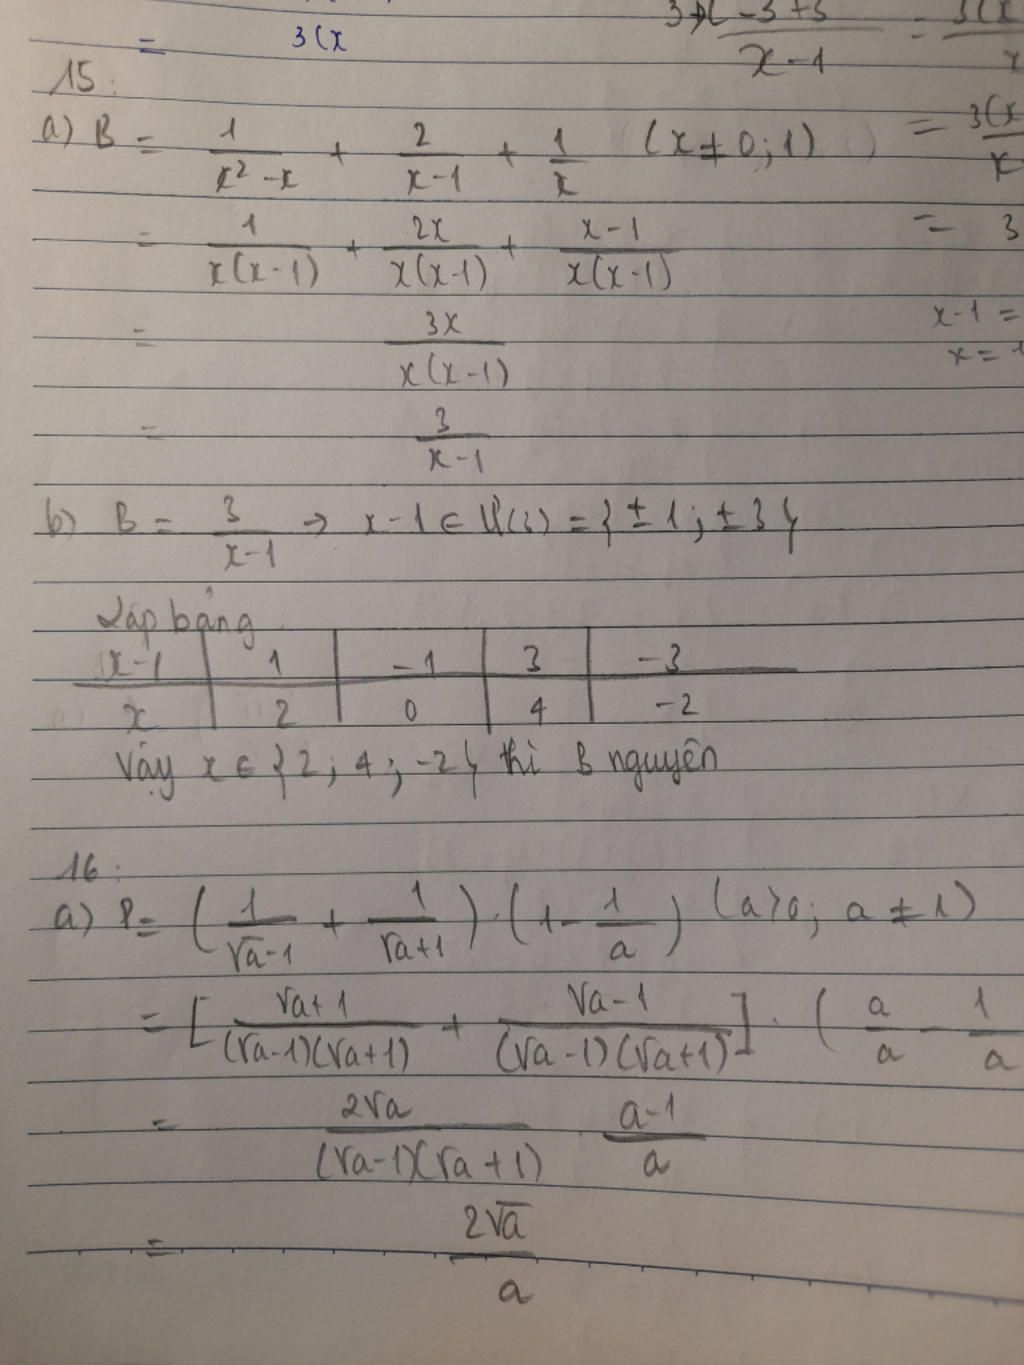 = 3(x
3x-3+3 / x-1 = 3(x
15:
a) B = 1/(x² - x) + 2/(x-1) + 1/x (x ≠ 0; 1) = 3(x / x
= 1/(x(x-1)) + 2x/(x(x-1)) + (x-1)/(x(x-1)) = 3
= 3x/(x(x-1)) x-1 =
x = 1
= 3/(x-1)
b) B = 3/(x-1) → x-1 ∈ Ư(3) = {±1; ±3}
Lập bảng
x-1 | 1 | -1 | 3 | -3
x | 2 | 0 | 4 | -2
Vậy x ∈ {2; 4; -2} thì B nguyên
16:
a) P = (1/(√a-1) + 1/(√a+1)) . (1 - 1/a) (a>0; a ≠ 1)
= [(√a+1)/((√a-1)(√a+1)) + (√a-1)/((√a-1)(√a+1))] . (a/a - 1/a
= 2√a/((√a-1)(√a+1)) (a-1)/a
= 2√a/a